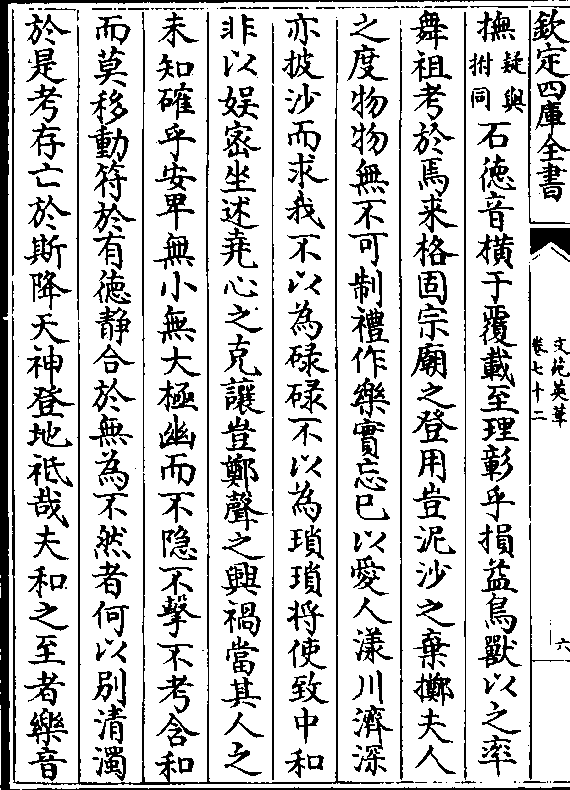 欽定四庫全書
文苑英華
卷七十二
六
撫疑與拊同石德音橫于覆載至理彰乎損益鳥獸以之率
舞祖考於焉來格固宗廟之登用豈泥沙之棄擲夫人
之度物物無不可制禮作樂實忘已以愛人漾川濟深
亦披沙而求我不以為碌碌不以為瑣瑣将使致中和
非以娱密坐述堯心之克讓豈鄭聲之興禍當其人之
未知確乎安卑無小無大極幽而不隐不擊不考含和
而莫移動符於有德静合於無為不然者何以别清濁
於是考存亡於斯降天神登地祗哉夫和之至者樂音